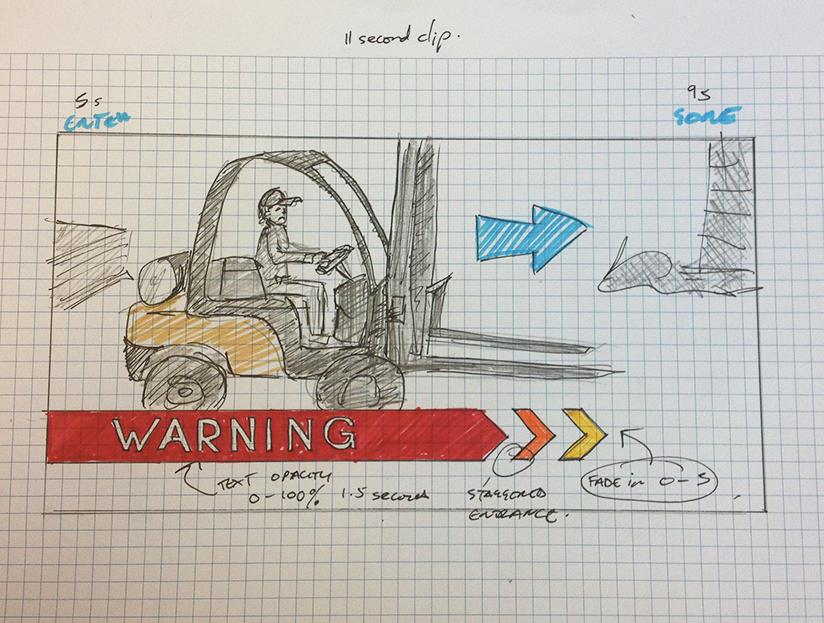 11 second clip.
5s
ENTER
9s
GONE
WARNING
TEXT OPACITY
0-100% 1.5 seconds
STAGGORED
ENTRANCE.
FADE in 0-5